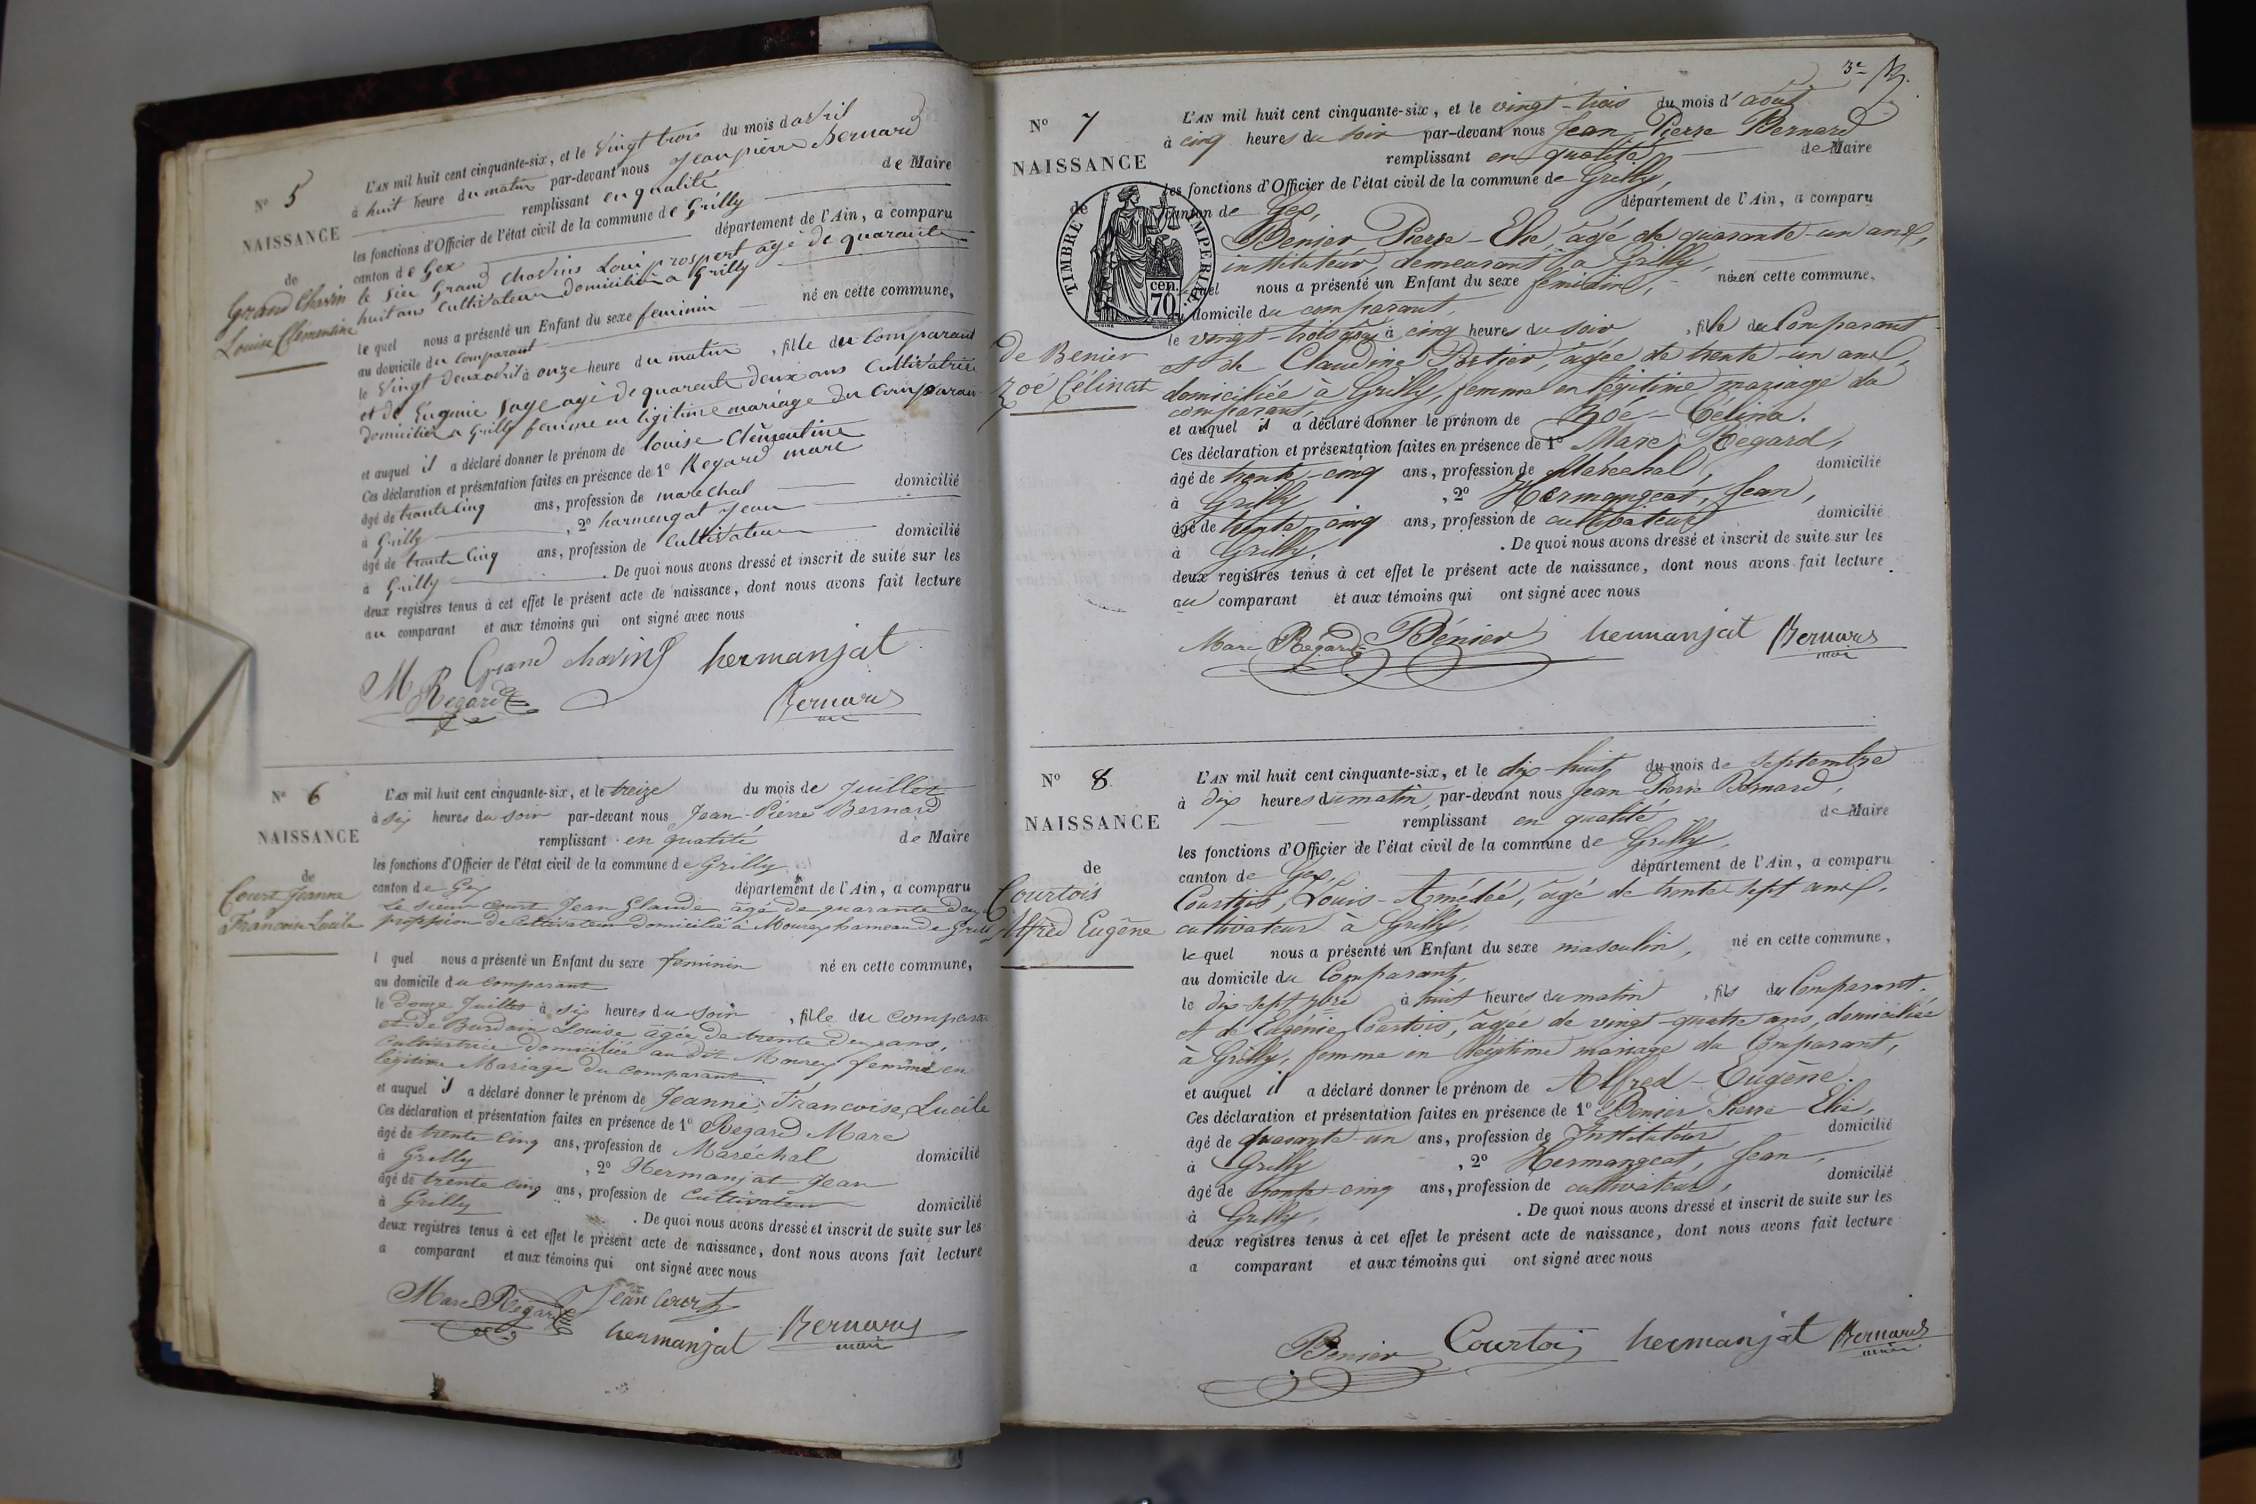 N° 5
NAISSANCE
de
Grand Chavin
Louise Clémentine
L'AN mil huit cent cinquante-six, et le vingt trois du mois d avril
à huit heure du matin par-devant nous Jean pierre Bernard
remplissant en qualité de Maire
les fonctions d'Officier de l'état civil de la commune de Grilly
canton de Gex département de l'Ain, a comparu
le sieur Grand Chavins Loui prospert agé de quarante
huit ans Cultivateur domicilié a Grilly
le quel nous a présenté un Enfant du sexe feminin né en cette commune,
au domicile du comparant
le vingt deux avril à onze heure du matin, fille du Comparant
et de Eugenie Sage agé de quarente deux ans Cultivatrice
domicilié a Grilly femme en ligitime mariage du Comparan
et auquel il a déclaré donner le prénom de louise Clémentine
Ces déclaration et présentation faites en présence de 1° Regard marc
âgé de trante Cinq ans, profession de marechal domicilié
à Grilly, 2° harmengat Jean
âgé de trante Cinq ans, profession de Cultivateur domicilié
à Grilly. De quoi nous avons dressé et inscrit de suite sur les
deux registres tenus à cet effet le présent acte de naissance, dont nous avons fait lecture
au comparant et aux témoins qui ont signé avec nous
Grand chavins hermanjat
M Regard Bernard
N° 6
NAISSANCE
de
Court Jeanne
Francoise Lucile
L'AN mil huit cent cinquante-six, et le treize du mois de Juillet
à six heures du soir par-devant nous Jean-Pierre Bernard
remplissant en qualité de Maire
les fonctions d'Officier de l'état civil de la commune de Grilly
canton de Gex département de l'Ain, a comparu
le sieur Court Jean Claude âgé de quarante deux
profession de Cultivateur domicilié à Mourex hameau de Grilly
l quel nous a présenté un Enfant du sexe feminin né en cette commune,
au domicile du comparant
le douze Juillet à six heures du soir, fille du compara
et de Burdain Louise âgée de trente deux ans,
Cultivatrice domiciliée au dit Mourex femme en
légitime Mariage du comparant
et auquel il a déclaré donner le prénom de Jeanne, Francoise Lucile
Ces déclaration et présentation faites en présence de 1° Regard Marc
âgé de trente cinq ans, profession de Maréchal domicilié
à Grilly, 2° Hermanjat Jean
âgé de trente cinq ans, profession de Cultivateur domicilié
à Grilly. De quoi nous avons dressé et inscrit de suite sur les
deux registres tenus à cet effet le présent acte de naissance, dont nous avons fait lecture
a comparant et aux témoins qui ont signé avec nous
Marc Regard Jean Court
hermanjat Bernard
maire
3e
N° 7
NAISSANCE
de
TIMBRE IMPERIAL
70 cen.
de Benier
Zoé Célinat
L'AN mil huit cent cinquante-six, et le vingt-trois du mois d'août
à cinq heures du soir par-devant nous Jean-Pierre Bernard
remplissant en qualité de Maire
les fonctions d'Officier de l'état civil de la commune de Grilly,
canton de Gex, département de l'Ain, a comparu
Benier, Pierre-Elie, âgé de quarante-un ans,
instituteur, demeurant à Grilly,
lequel nous a présenté un Enfant du sexe féminin, né en cette commune,
au domicile du comparant,
le vingt-trois août à cinq heures du soir, fille du Comparant
et de Claudine Portier, âgée de trente-un ans,
domiciliée à Grilly, femme en légitime mariage du
comparant,
et auquel il a déclaré donner le prénom de Zoé-Célina.
Ces déclaration et présentation faites en présence de 1° Marc Regard,
âgé de trente-cinq ans, profession de Maréchal, domicilié
à Grilly, 2° Hermangeat, Jean,
âgé de trente-cinq ans, profession de cultivateur domicilié
à Grilly. De quoi nous avons dressé et inscrit de suite sur les
deux registres tenus à cet effet le présent acte de naissance, dont nous avons fait lecture
au comparant et aux témoins qui ont signé avec nous
Marc Régard Bénier hermanjat Bernard
mair
N° 8
NAISSANCE
de
Courtois
Alfred Eugène
L'AN mil huit cent cinquante-six, et le dix-huit du mois de septembre
à dix heures du matin, par-devant nous Jean-Pierre Bernard,
remplissant en qualité de Maire
les fonctions d'Officier de l'état civil de la commune de Grilly,
canton de Gex, département de l'Ain, a comparu
Courtois, Louis-Amédée, âgé de trente sept ans,
cultivateur à Grilly,
le quel nous a présenté un Enfant du sexe masculin, né en cette commune,
au domicile du Comparant,
le dix-sept 7bre à huit heures du matin, fils du Comparant.
et d'Eugénie Courtois, âgée de vingt-quatre ans, domiciliée
à Grilly, femme en légitime mariage du Comparant,
et auquel il a déclaré donner le prénom de Alfred-Eugène.
Ces déclaration et présentation faites en présence de 1° Benier Pierre-Elie,
âgé de quarante-un ans, profession de Instituteur domicilié
à Grilly, 2° Hermangeat, Jean,
âgé de trente-cinq ans, profession de cultivateur, domicilié
à Grilly. De quoi nous avons dressé et inscrit de suite sur les
deux registres tenus à cet effet le présent acte de naissance, dont nous avons fait lecture
a comparant et aux témoins qui ont signé avec nous
Benier Courtois hermanjat Bernard
maire